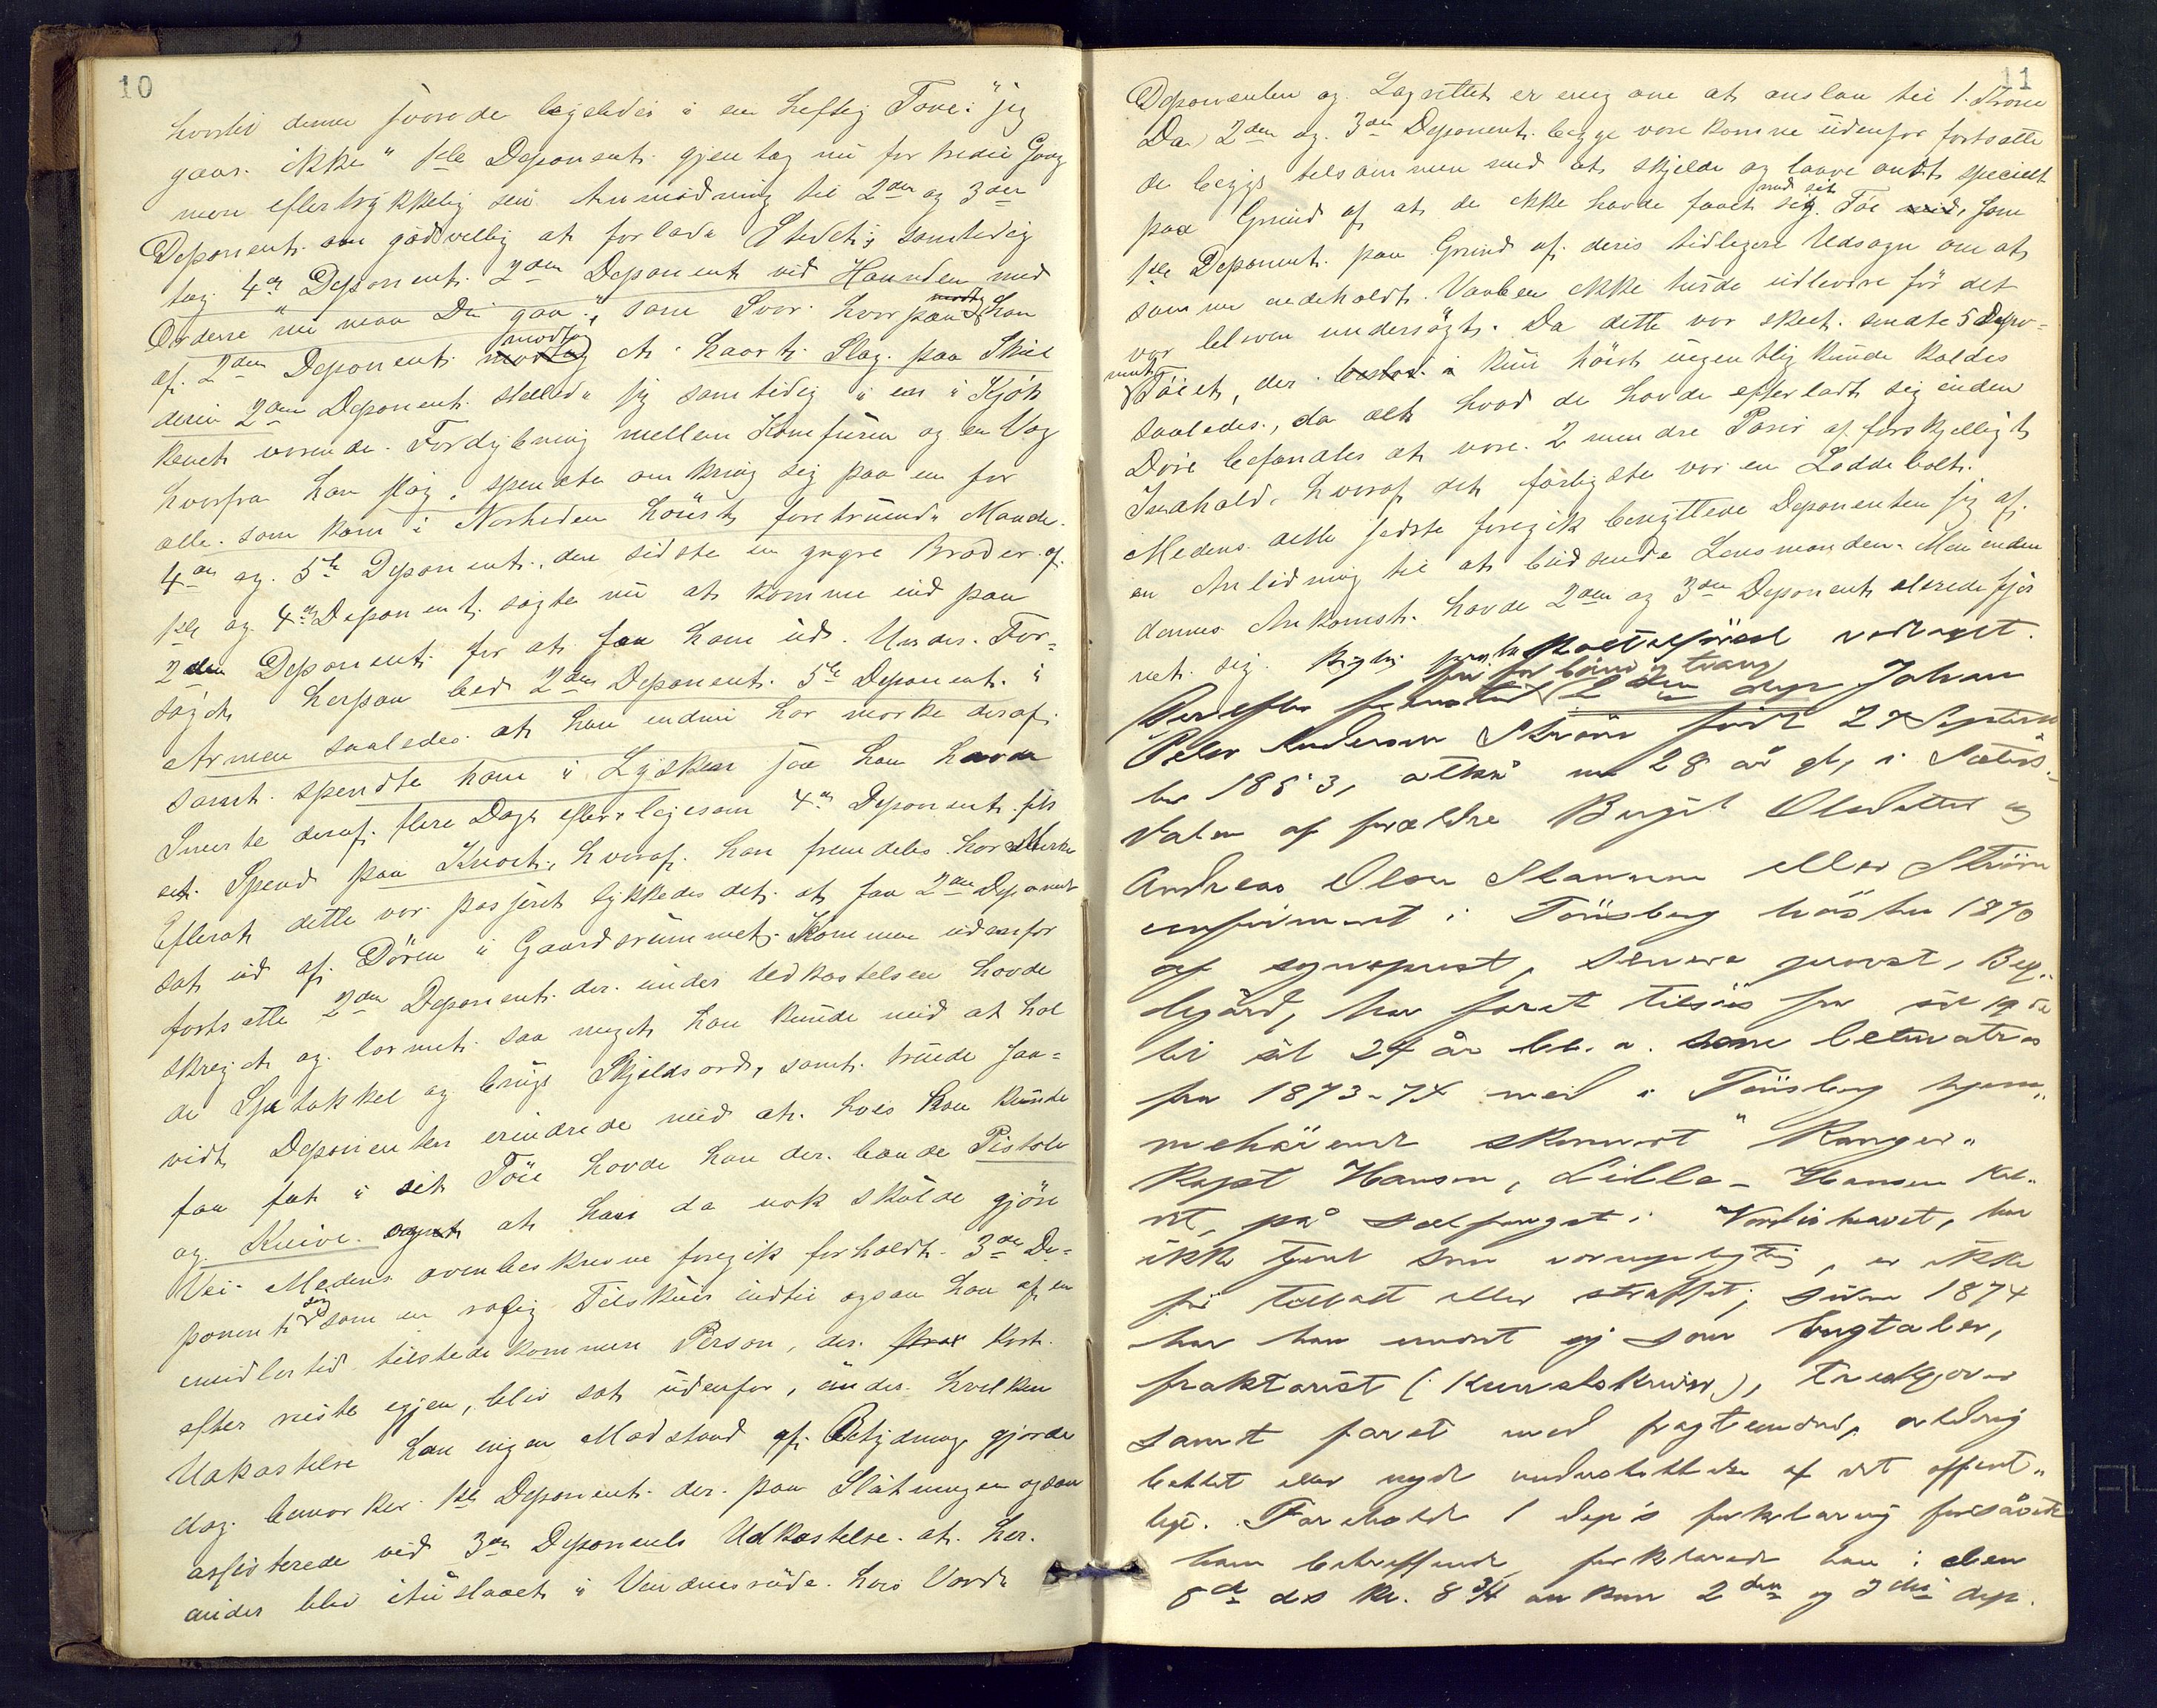 10
hvortil denne svarede ligeledes i en heftig Tone: "jeg
gaar ikke" 1ste Deponent gjentog nu for tredie Gang
men eftertrykkelig sin Anmodning til 2den og 3die
Deponent om godvillig at forlade Stedet; samtidig
tog 4de Deponent 2den Deponent ved Haanden med
Ordene "nu maa Du gaa", som Svar hvorpaa han
af 2den Deponent modtog et haardt Slag paa Skul
deren 2den Deponent stillede sig samtidig i en i Kjøk
kenet værende Fordybning mellem Komfuren og en Væg
hvorfra han slog, spendte omkring sig paa en for
alle som kom i Nærheden höist foretrüende Maade.
4de og 5te Deponent, den sidste en yngre Broder af
1ste og 4de Deponent søgte nu at komme ind paa
2den Deponent for at faa ham ud. Under For=
søget herpaa bed 2den Deponent 5te Deponent i
Armen saaledes at han endnu har mærke deraf
samt spendte ham i Lysken saa han havde
Smerte deraf flere Dage efter ligesom 4de Deponent fik
et Spend paa Knæet, hvoraf han fremdeles har Mærke
Efterat dette var passeret lykkedes det at faa 2den Deponent
sat ud af Dören i Gaardsrummet. Kommen udenfor
fortsatte 2den Deponent der under Udkastelsen havde
skreget og larmet saa meget han kunde med at hol
de Spetakkel og bruge Skjeldsord, samt truede saa=
vidt Deponenten erindrede med at hvis han kunde
faa fat i sit Töi havde han der baade Pistole
og Knive at han da nok skulde gjöre
Vei. Medens ovenbeskrevne foregik forholdt 3die De=
ponent sig som en rolig Tilskuer indtil ogsaa han af en
imidlertid tilstedekommen Person, der strax kort
efter reiste igjen, blev sat udenfor, under hvilken
Udkastelse han ingen Modstand af Betydning gjorde
dog bemærker 1ste Deponent der paa Slutningen ogsaa
assisterede ved 3die Deponents Udkastelse at her
under blev ituslaaet i Vinduesrude hvis Værdi
11
Deponenten og Lagrettet er enig om at anslaa til 1 Krone
Da 2den og 3die Deponent begge vare komne udenfor fortsatte
de begge tilsammen med at skjelde og laave ondt specielt
paa Grund af at de ikke havde faaet med sit Töi som
1ste Deponent paa Grund af deres tidligere Udsagn om at
samme indeholdt Vaaben ikke turde udlevere för det
var bleven undersögt. Da dette var skeet sendte 5 Depo=
nent Töiet, der kun höist uegentlig kunde kaldes
saaledes, da alt hvad de havde efterladt sig inden
Döre befandtes at være 2 mindre Poser af forskjelligt
Indhold, hvoraf det farligste var en Loddebolt.
Medens dette sidste foregik benyttede Deponenten sig af
en Anledning til at budsende Lensmanden. Men inden
dennes Ankomst havde 2den og 3die Deponent allerede fjer
net sig. Rigtig vedtaget.
Derefter fremstod fri for baand og tvang 2den dep Johan
Peter Andersen Ström född 27 Septem
ber 1853, altsaa nu 28 år gl, i Sæters
dalen af forældre Birgit Olsdatter og
Andreas Olsen Stammen eller Ström
confirmeret i Tönsberg hösten 1870
af sogneprest, senere provst, Bug"
degård, har faret tilsös fra sit 19de
til sit 24 år bl. a. som letmatros
fra 1873-74 med i Tönsberg hjem"
mehörende skonnert "Ranger"
Kapt Hansen, Lille-Hansen kal"
det, på sælfangst i Nordishavet, har
ikke tjent som vernepligtig, er ikke
för tiltalt eller straffet; siden 1874
har han ernæret sig som bugtaler,
fraktarist (Kunstskriver),
samt faret med fragtemænd, aldrig
bettet eller nydt understöttelse af det offent"
lige. Foreholdt 1 dep's forklaring forsåvidt
ham betræffende forklarede han: den
8de ds kl. 8 3/4 ankom 2den og 3die dep.